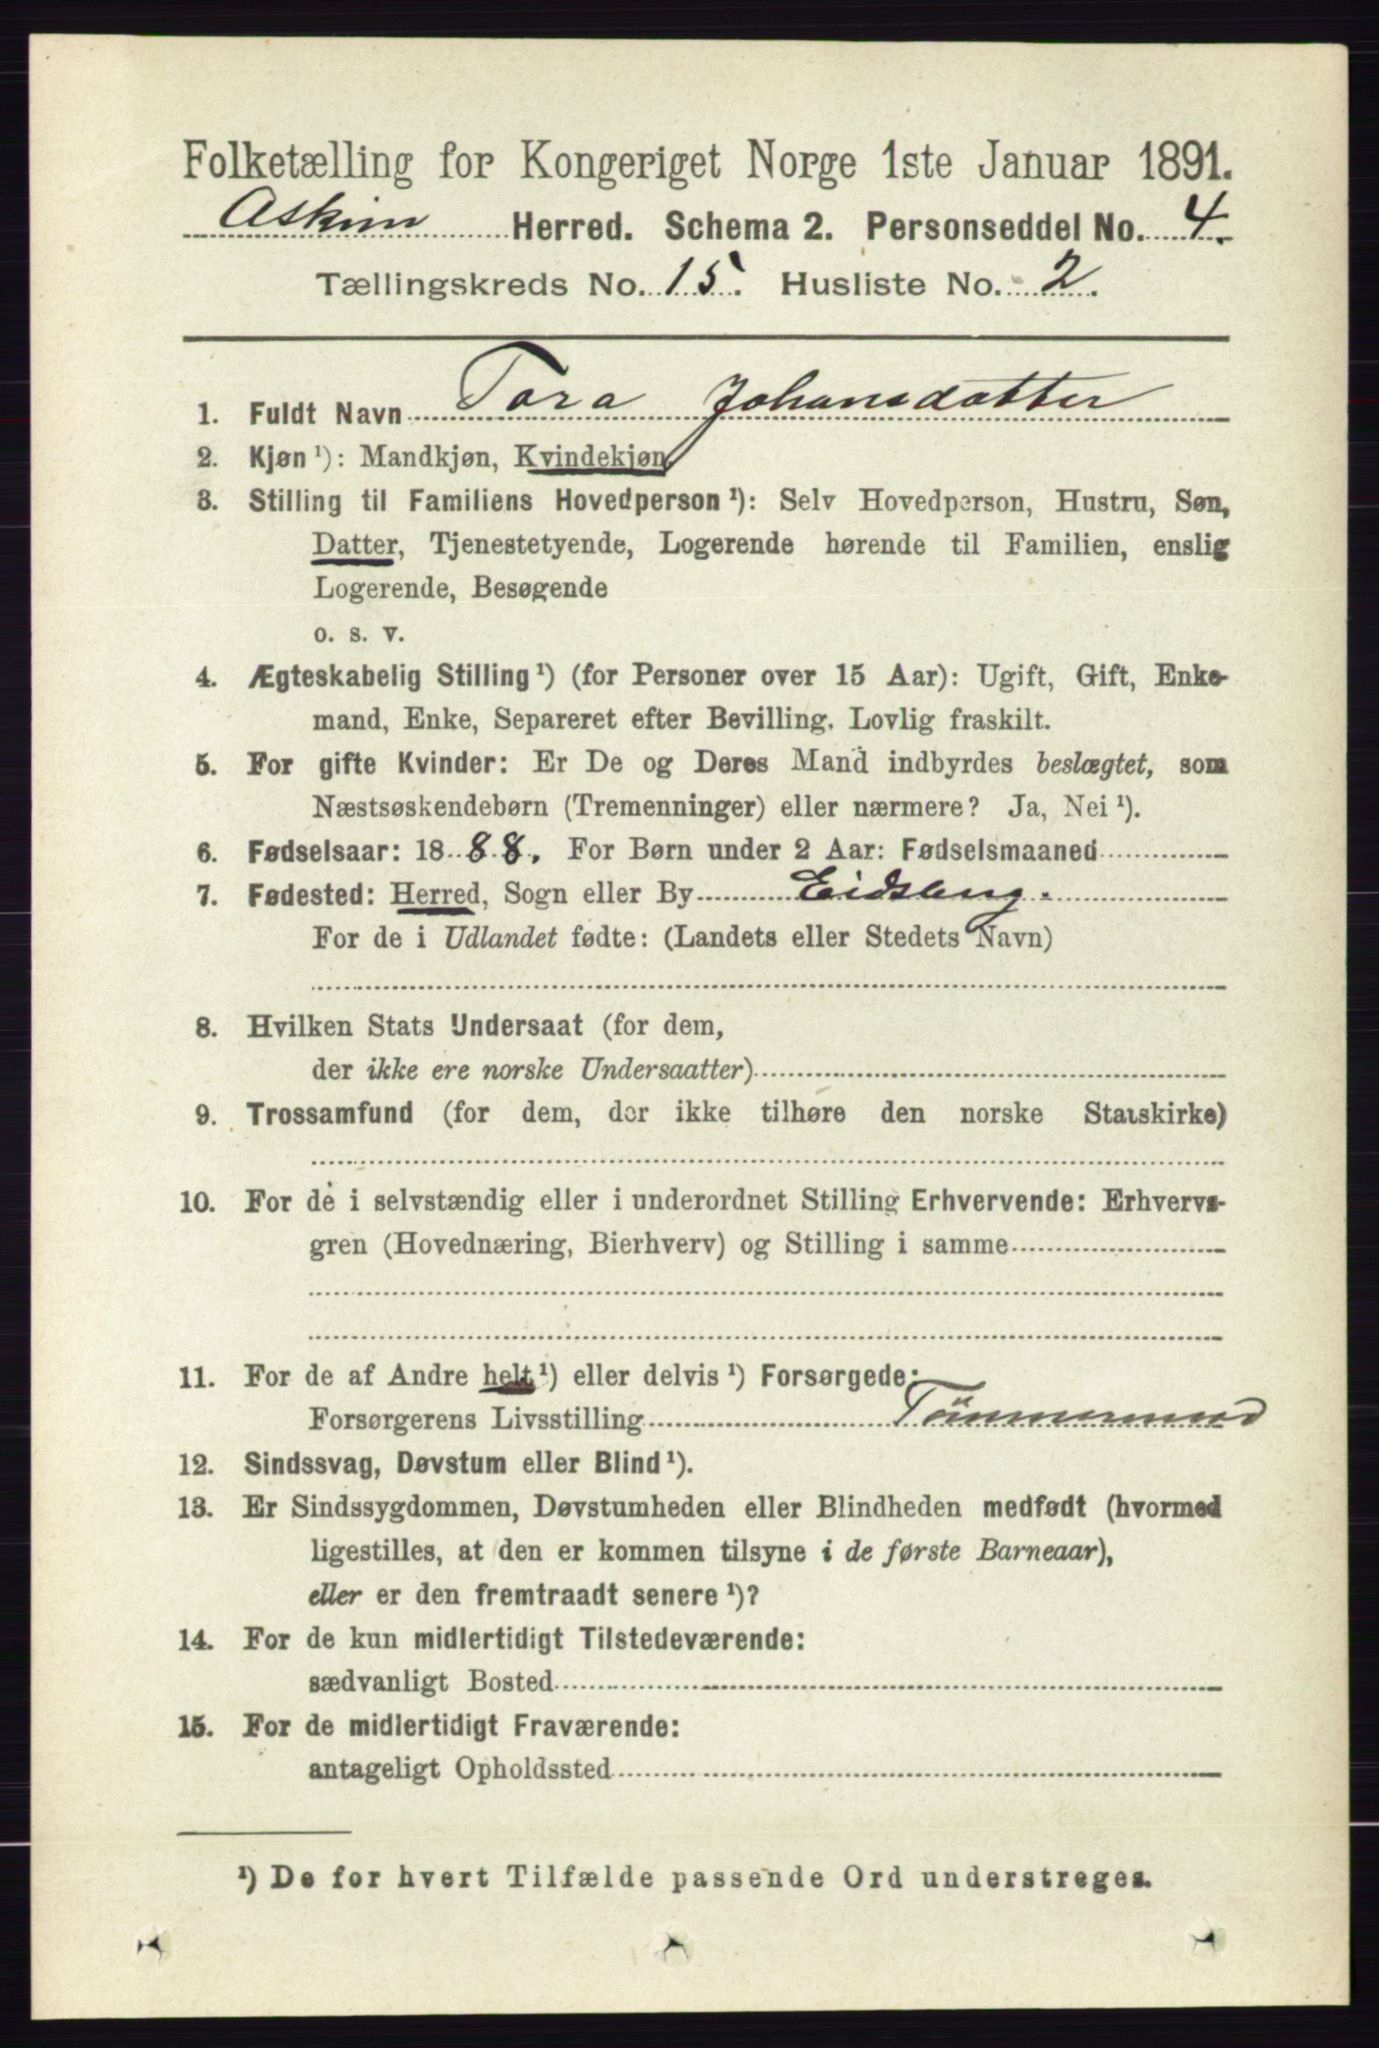 Folketælling for Kongeriget Norge 1ste Januar 1891.
Askim Herred. Schema 2. Personseddel No. 4.
Tællingskreds No. 15. Husliste No. 2.
1. Fuldt Navn Tora Johansdatter
2. Kjøn ¹): Mandkjøn, Kvindekjøn
3. Stilling til Familiens Hovedperson ¹): Selv Hovedperson, Hustru, Søn,
Datter, Tjenestetyende, Logerende hørende til Familien, enslig
Logerende, Besøgende
o. s. v.
4. Ægteskabelig Stilling ¹) (for Personer over 15 Aar): Ugift, Gift, Enke-
mand, Enke, Separeret efter Bevilling. Lovlig fraskilt.
5. For gifte Kvinder: Er De og Deres Mand indbyrdes beslægtet, som
Næstsøskendebørn (Tremenninger) eller nærmere? Ja, Nei ¹).
6. Fødselsaar: 1888. For Børn under 2 Aar: Fødselsmaaned
7. Fødested: Herred, Sogn eller By Eidsberg.
For de i Udlandet fødte: (Landets eller Stedets Navn)
8. Hvilken Stats Undersaat (for dem,
der ikke ere norske Undersaatter)
9. Trossamfund (for dem, der ikke tilhøre den norske Statskirke)
10. For de i selvstændig eller i underordnet Stilling Erhvervende: Erhvervs-
gren (Hovednæring, Bierhverv) og Stilling i samme
11. For de af Andre helt ¹) eller delvis ¹) Forsørgede:
Forsørgerens Livsstilling Tømmermand
12. Sindssvag, Døvstum eller Blind ¹).
13. Er Sindssygdommen, Døvstumheden eller Blindheden medfødt (hvormed
ligestilles, at den er kommen tilsyne i de første Barneaar),
eller er den fremtraadt senere ¹)?
14. For de kun midlertidigt Tilstedeværende:
sædvanligt Bosted
15. For de midlertidigt Fraværende:
antageligt Opholdssted
¹) De for hvert Tilfælde passende Ord understreges.